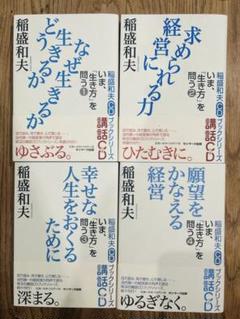 なぜ生きるか
どう生きるか
稲盛和夫
稲盛和夫CDブックシリーズ
いま、
「生き方」を
問う①
講話CD
ゆさぶる。
求められる
経営にかける力
稲盛和夫
稲盛和夫CDブックシリーズ
いま、
「生き方」を
問う②
講話CD
ひたむきに。
幸せな
人生をおくる
ために
稲盛和夫
稲盛和夫CDブックシリーズ
いま、
「生き方」を
問う③
講話CD
深まる。
願望を
かなえる
経営
稲盛和夫
稲盛和夫CDブックシリーズ
いま、
「生き方」を
問う④
講話CD
ゆるぎなく。